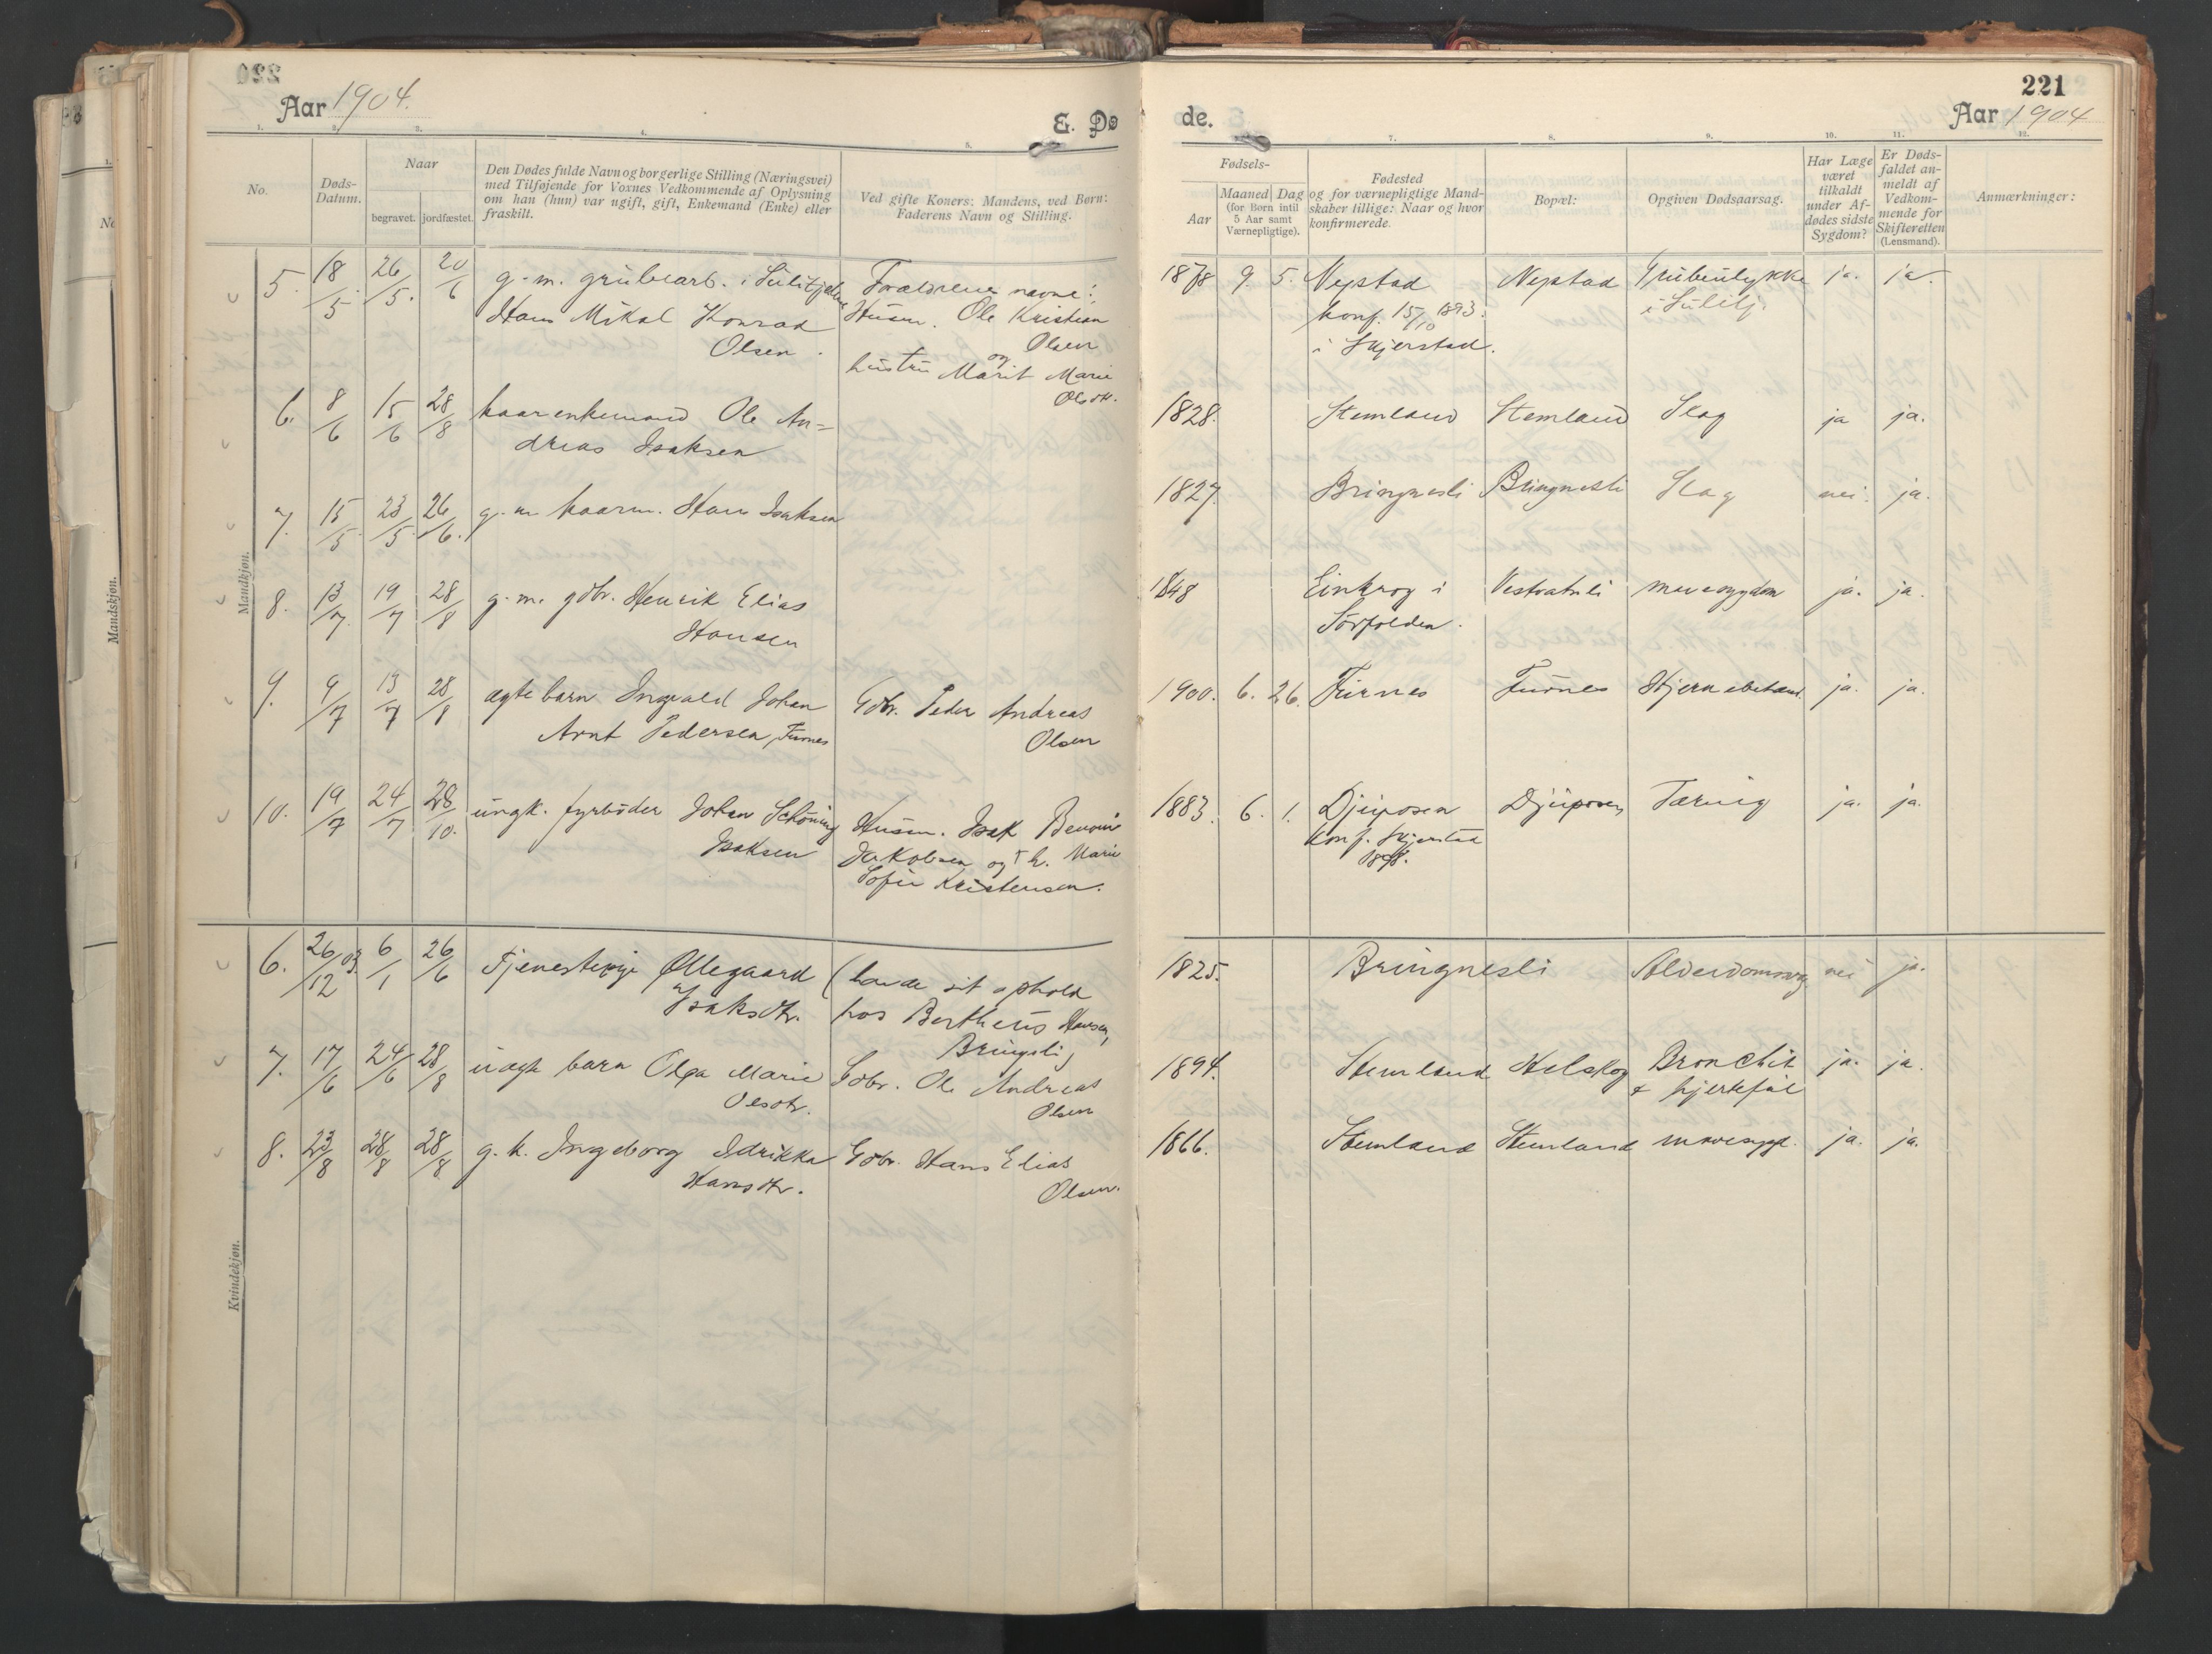 Aar 1904.
E. Dø
1. 2. 3. 4. 5.
No.
Døds-
Datum.
Naar
begravet. jordfæstet.
Den Dødes fulde Navn og borgerlige Stilling (Næringsvei)
med Tilføjende for Voxnes Vedkommende af Oplysning
om han (hun) var ugift, gift, Enkemand (Enke) eller
fraskilt.
Ved gifte Koners: Mandens, ved Børn:
Faderens Navn og Stilling.
Mandkjøn.
5. 18/5 26/5. 20/6 g. m. grubearb. i Sulitjelma Forældrenes navne:
Hans Mikal Konrad Husm. Ole Kristian
Olsen. Olsen
og
hustru Marit Marie
Olsdtr.
6. 8/6 15/6 28/8 kaarenkemand Ole An=
dreas Isaksen
7. 15/5 23/5. 26/6. g. m. kaarm. Hans Isaksen
8. 13/7 19/7 28/8 g. m. gdbr. Henrik Elias
Hansen
9. 9/7 13/7 28/8 ægte barn Ingvald Johan Gdbr. Peder Andreas
Arnt Pedersen, Furnes Olsen
10. 19/7 24/7 28/10. ungk. fyrbøder Johan Schöning Husm. Isak Benoni
Isaksen Jakobsen og h. Marie
Sofie Kristensen.
Kvindekjøn.
6. 26/12 03. 6/1 26/6 Tjenestepige Øllegaard (havde sit ophold
Isaksdtr. hos Bertheus Hansen,
Bringsli)
7. 17/6 24/6 28/8 uægte barn Olga Marie Gdbr. Ole Andreas
Olsdtr. Olsen
8. 23/8 28/8 28/8 g. k. Ingeborg Edrikka Gdbr. Hans Elias
Hansdtr. Olsen.
221
de.
Aar 1904
7. 8. 9. 10. 11. 12.
Fødsels-
Aar
Maaned Dag
(for Børn intil
5 Aar samt
Værnepligtige).
Fødested
og for værnepligtige Mand-
skaber tillige: Naar og hvor
konfirmerede.
Bopæl:
Opgiven Dødsaarsag.
Har Læge
været
tilkaldt
under Af-
dødes sidste
Sygdom?
Er Døds-
faldet an-
meldt af
Vedkom-
mende for
Skifteretten
(Lensmand).
Anmærkninger:
1878 9. 5. Nystad Nystad Grubeulykke ja. ja.
konf. 15/10 1893. i Sulitj.
i Skjerstad.
1828. Stemland Stemland Slag ja ja.
1827. Bringnesli Bringnesli Slag nei. ja.
1848 Einkrog i Vestvatnli mavesygdom ja. ja.
Sørfolden.
1900. 6. 26. Furnes Furnes Hjernebetænd. ja. ja.
1883. 6. 1. Djuposen Djuposen Tæring ja. ja.
Konf. Skjerstad
1898.
1825. Bringnesli Alderdomssvag nei ja.
1894. Stemland Helskog Bronchit ja. ja.
& hjertefeil
1866. Stemland Stemland mavesygd. ja. ja.